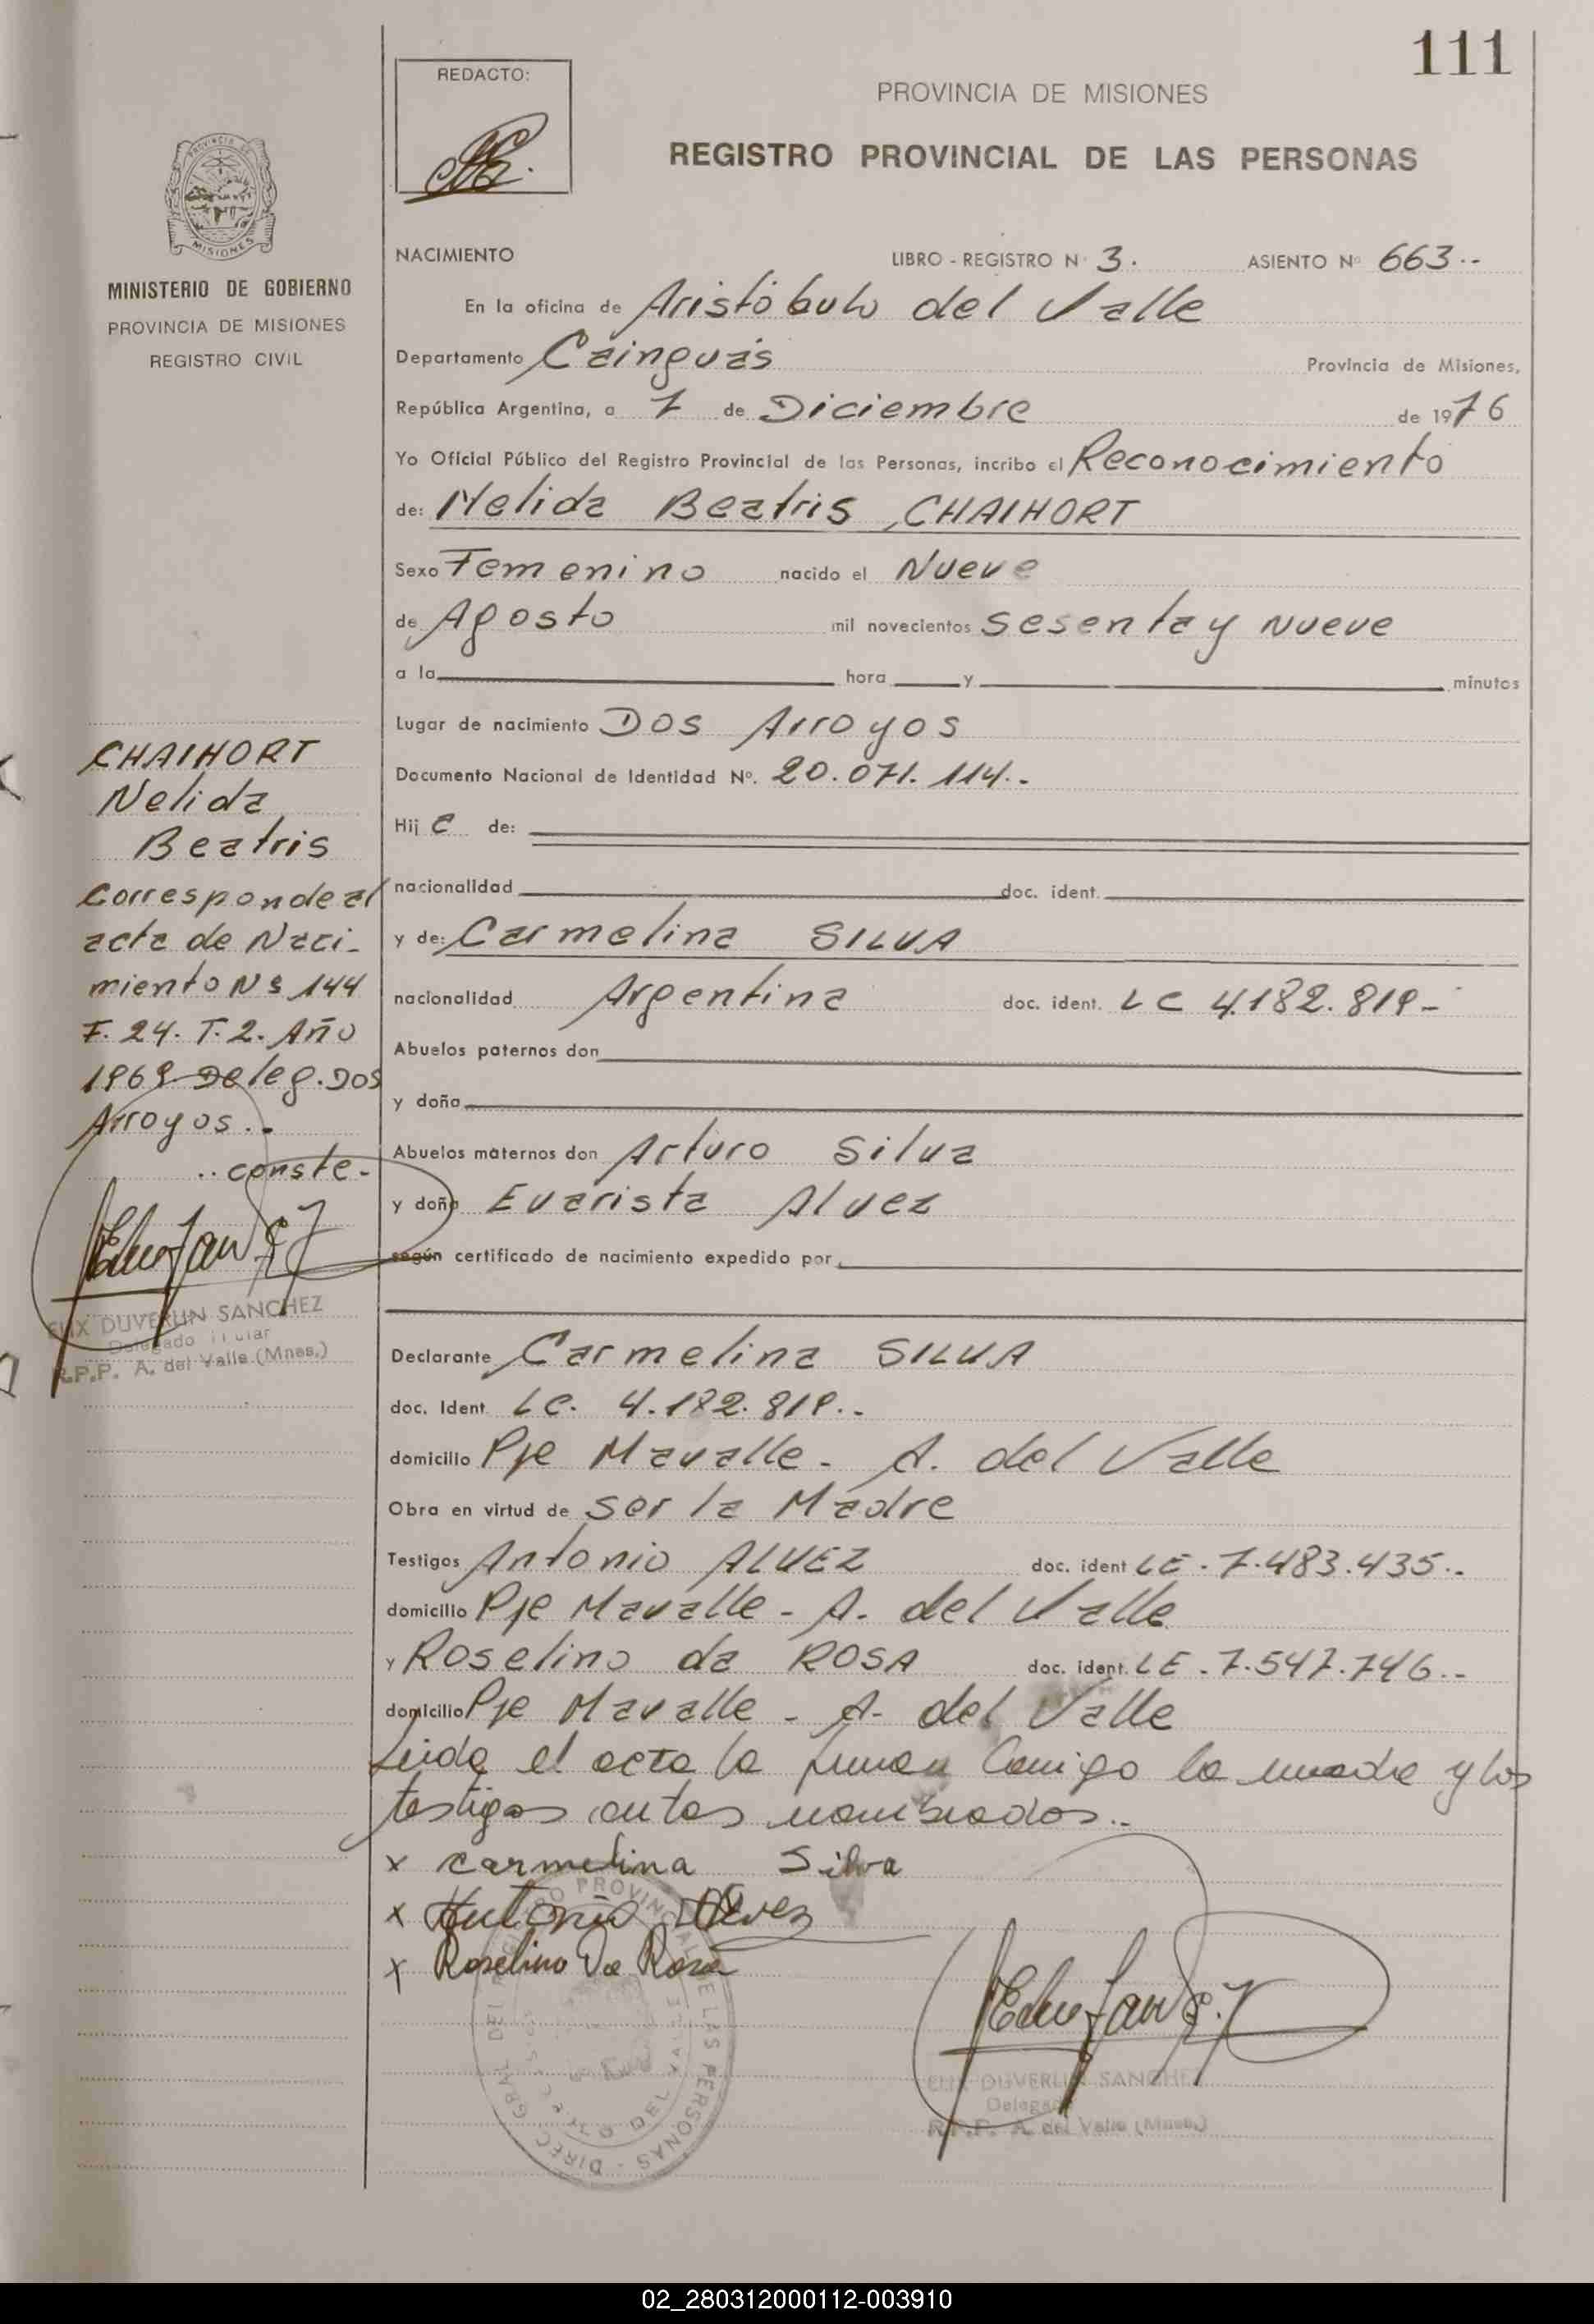 111
REDACTO:
PROVINCIA DE MISIONES
REGISTRO PROVINCIAL DE LAS PERSONAS
PROVINCIA DE
MISIONES
MINISTERIO DE GOBIERNO
PROVINCIA DE MISIONES
REGISTRO CIVIL
NACIMIENTO LIBRO - REGISTRO Nº 3. ASIENTO Nº 663.-
En la oficina de Aristóbulo del Valle
Departamento Cainguás Provincia de Misiones,
República Argentina, a 7 de Diciembre de 1976
Yo Oficial Público del Registro Provincial de las Personas, incribo el Reconocimiento
de: Nelida Beatris CHAIHORT
Sexo Femenino nacido el Nueve
de Agosto mil novecientos sesenta y Nueve
a la hora y minutos
Lugar de nacimiento Dos Arroyos
Documento Nacional de Identidad Nº. 20.071.114.-
Hij de:
nacionalidad doc. ident.
y de: Carmelina SILVA
nacionalidad Argentina doc. ident. LC 4.182.819-
Abuelos paternos don
y doña
Abuelos maternos don Arturo Silva
y doña Evarista Alvez
según certificado de nacimiento expedido por
Declarante Carmelina SILVA
doc. Ident LC. 4.182.819.-
domicilio Pje Mavalle - A. del Valle
Obra en virtud de ser la Madre
Testigos Antonio ALVEZ doc. ident LE. 7.483.435.-
domicilio Pje Mavalle - A. del Valle
y Roselino da ROSA doc. ident. LE. 7.547.746.-
domicilio Pje Mavalle - A. del Valle
Leida el acta la firman Conmigo la madre y los
testigos antes nombrados.-
x Carmelina Silva
x Antonio Alvez
x Roselino Da Rosa
CHAIHORT
Nelida
Beatris
Corresponde al
acta de Naci-
miento Nº 144
F. 24. T. 2. Año
1969 Deleg. Dos
Arroyos.-
..conste-
ELIX DUVERLIN SANCHEZ
Delegado Titular
R.P.P. A. del Valle (Mnes.)
PROVINCIAL DE LAS PERSONAS - DIREC. GRAL. DEL
ELIX DUVERLIN SANCHEZ
Delegado
R.P.P. A. del Valle (Mnes.)
02_280312000112-003910